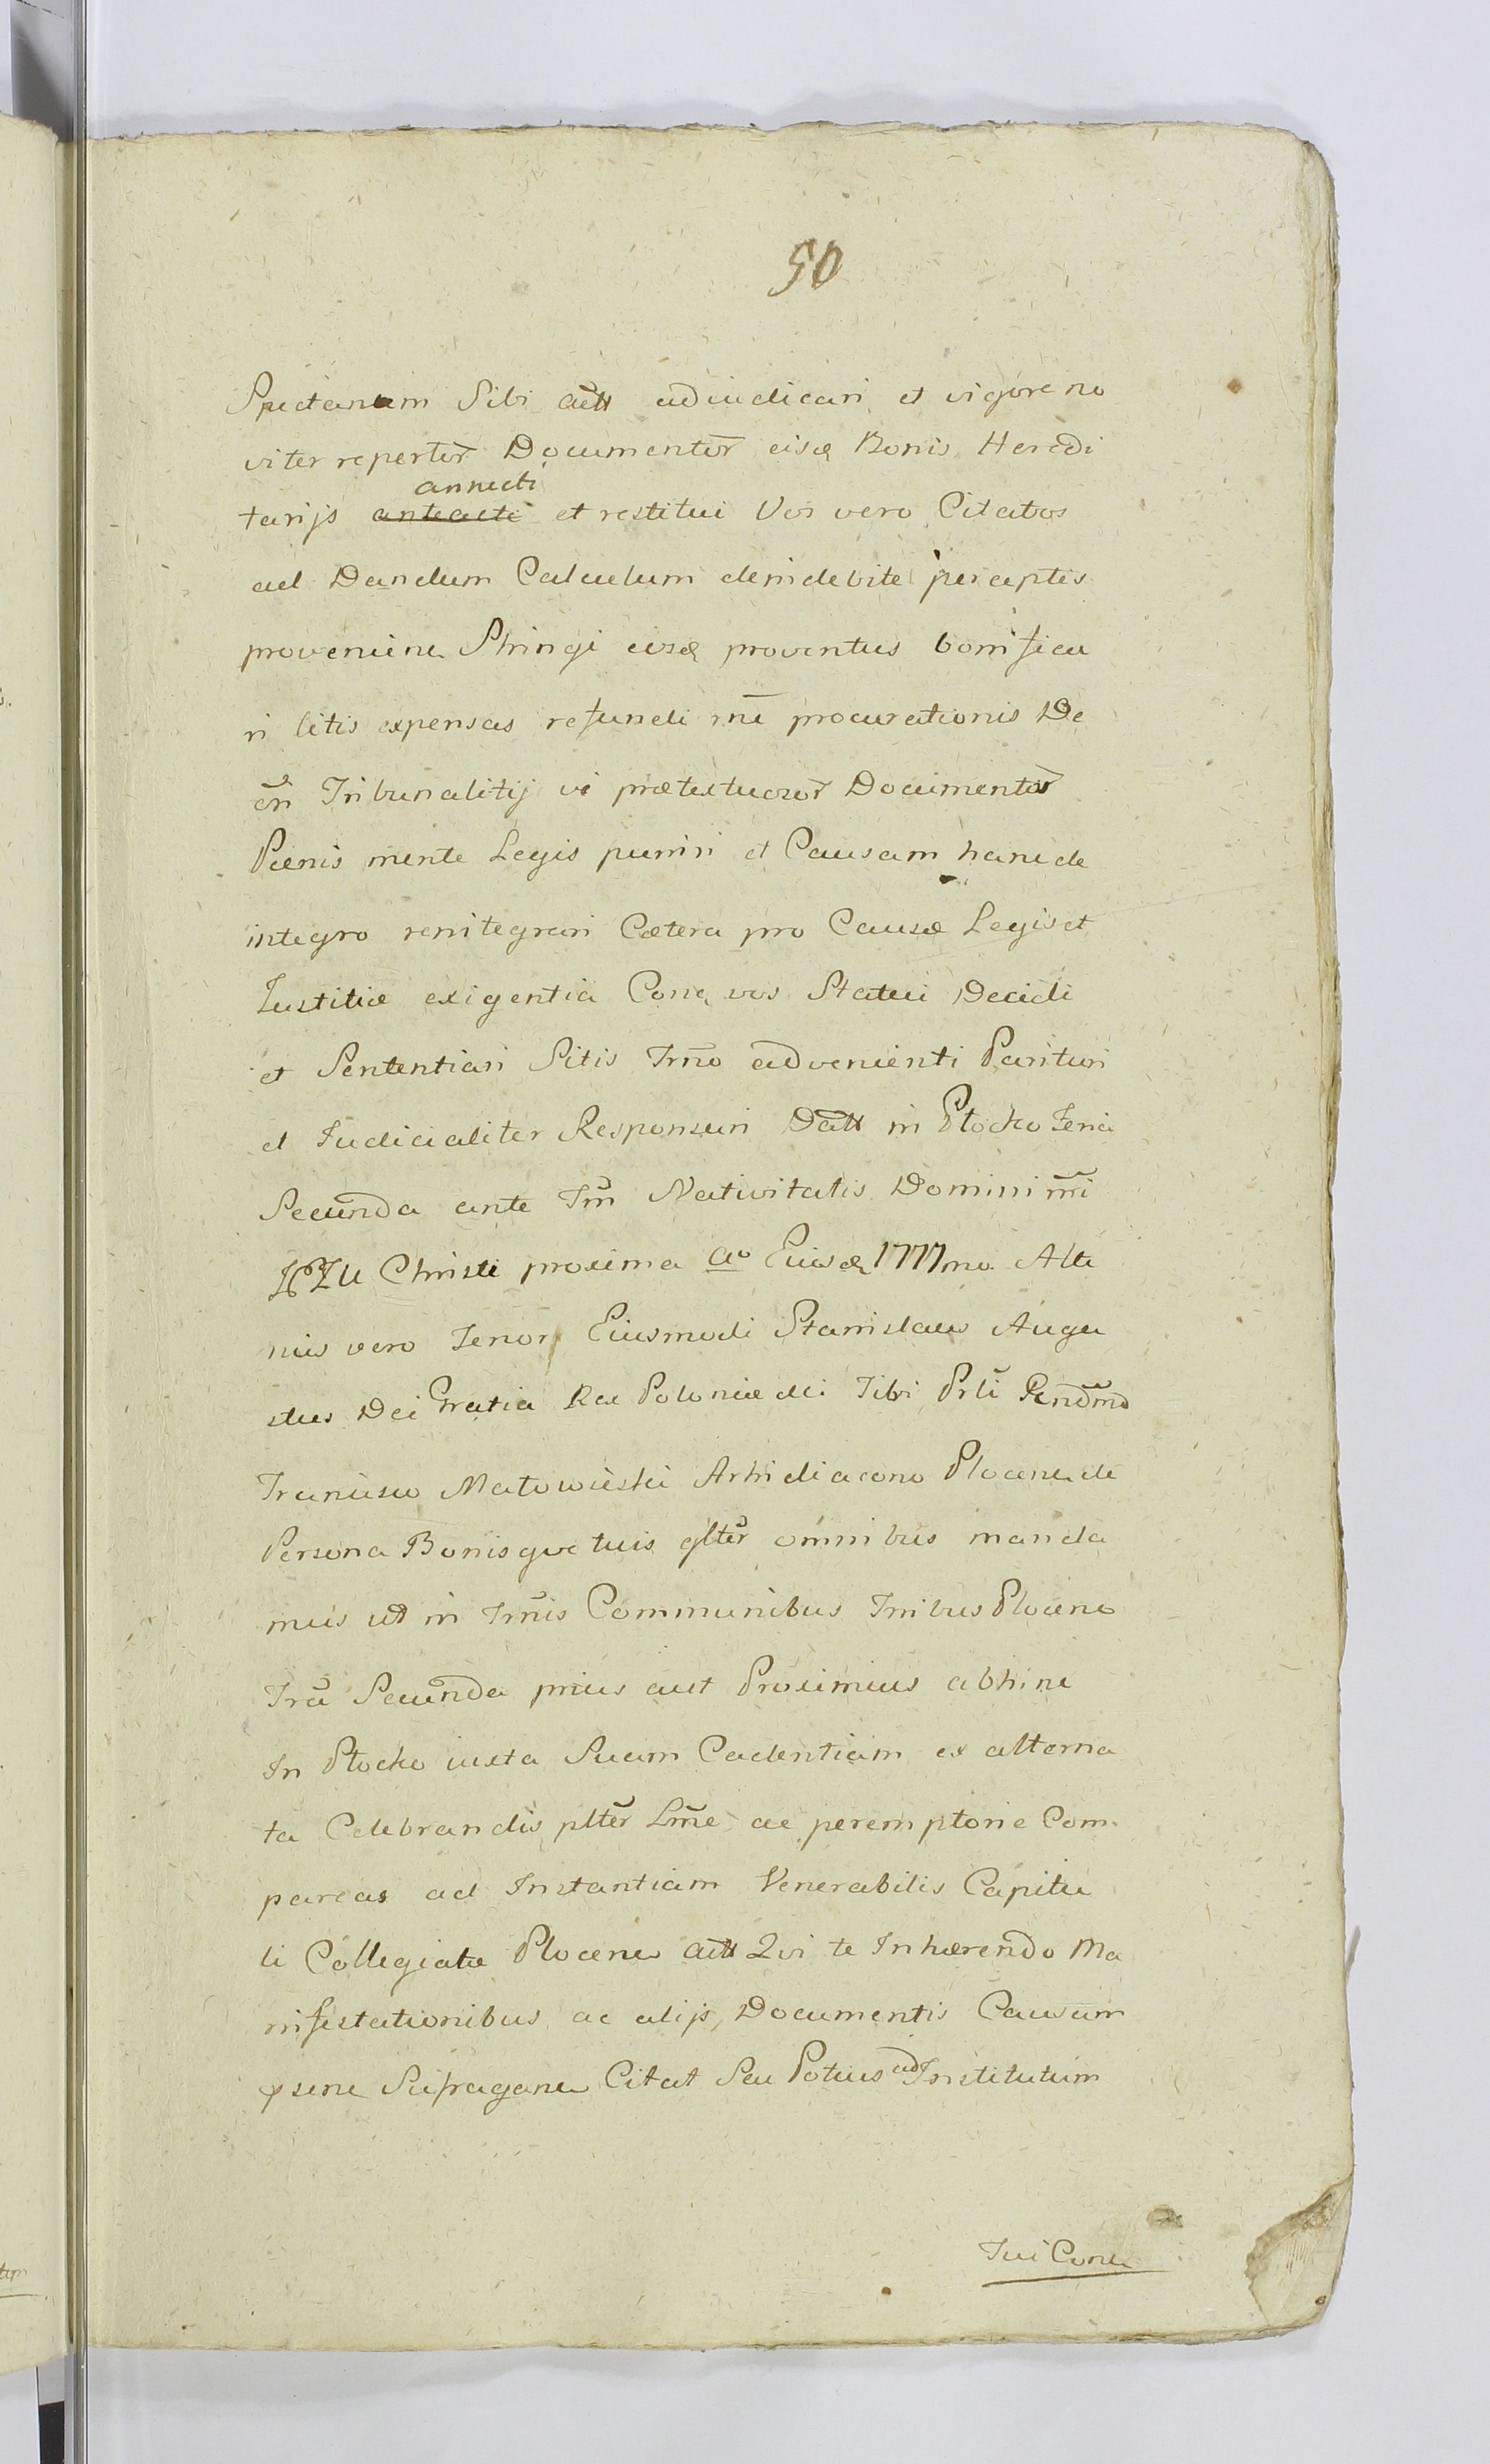 50
Spectantem Sibi actt adiudicari et vigore no
viter repertor̃ Documentor̃ eisq Bonis Heredi
annecti
tarijs anteacti et restitui Vos vero Citatos
ad Dandum Calculum de indebite perceptis
provenienc Stringi eosq proventus bonifica
ri litis expensas refundi rñe procurationis De
cr̃i Tribunalitij vi prætextuosor̃ Documentor̃
Pænis mente Legis puniri et Causam hanc de
integro reintegrari Cætera pro Causæ Legis et
Iustitiæ exigentia Conq vos Statui Decidi
et Sententiari Sitis Trño advenienti Parituri
et Iudicialiter Responsuri Datt in Płocko Feria
Secunda ante Fm̃ Nativitatis Domini nr̃i
JEZU Christi proxima Ao Eiusq 1777mo Alte
rius vero Tenor Eiusmodi Stanislaus Augu
stus Dei Gratia Rex Poloniæ etc Tibi Prli Rnd̃mo
Francisco Matowieski Arhidiacono Plocen de
Persona Bonisque tuis glter̃ omnibus manda
mus ut in Trñis Communibus Tribus Plocens
Fria Secunda prius aut Proximius abhinc
In Płocko iuxta Suam Cadentiam ex alterna
ta Celebrandis plter̃ Lrñe ac peremptorie Com
pareas ad Instantiam Venerabilis Capitu
li Collegiatæ Plocens actt Qui te Inhærendo Ma
nifestationibus ac alijs Documentis Causam
Sufragane Citat Seu Potius ad Institutum
Tui Conq